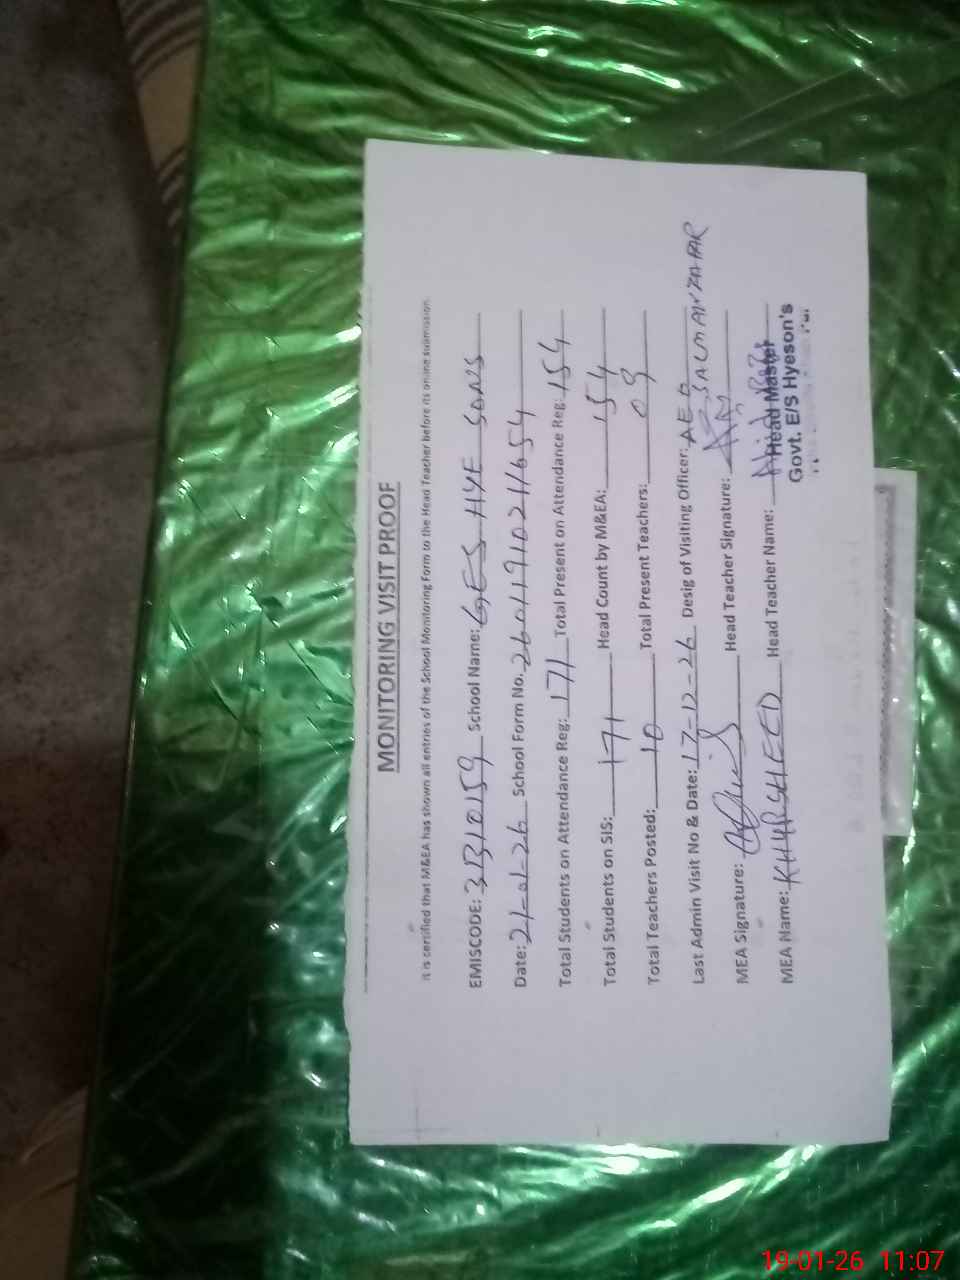 MONITORING VISIT PROOF
It is certified that M&EA has shown all entries of the School Monitoring Form to the Head Teacher before its online submission.
EMISCODE: 31310159 School Name: GES HYE SONS
Date: 21-01-26 School Form No. 26011910211654
Total Students on Attendance Reg: 171 Total Present on Attendance Reg: 154
Total Students on SIS: 171 Head Count by M&EA: 154
Total Teachers Posted: 10 Total Present Teachers: 09
Last Admin Visit No & Date: 17-12-26 Desig of Visiting Officer: AEO SALMAN ZAFAR
MEA Signature: Head Teacher Signature:
MEA Name: KHURSHEED Head Teacher Name:
Head Master
Govt. E/S Hyeson's
19-01-26 11:07